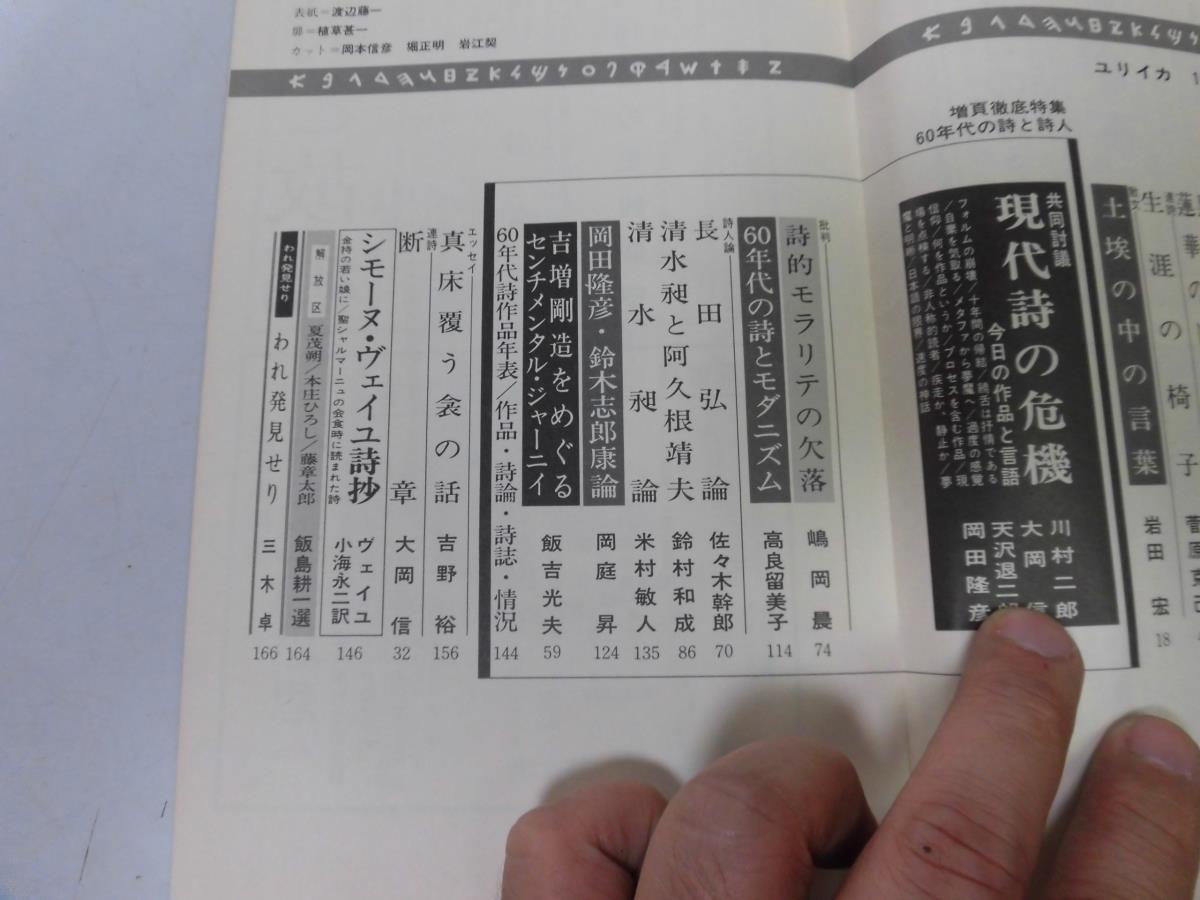 表紙=渡辺藤一
扉=植草甚一
カット=岡本信彦 堀正明 岩江契
ユリイカ
増頁徹底特集
60年代の詩と詩人
生涯の椅子
土埃の中の言葉 岩田宏 18
共同討議
現代詩の危機
今日の作品と言語
フォルムの崩壊/十年間の帰結/饒舌は抒情である
/自棄を気取る/メタファから夢魔へ/過度の感覚
信仰/何を作品というか/プロセスを含む作品/現
場を点検する/非人称的読者/疾走か、静止か/夢
魔と明晰/日本語の限界/速度の神話
川村二郎
大岡信
天沢退二
岡田隆彦
批判
詩的モラリテの欠落 嶋岡晨 74
60年代の詩とモダニズム 高良留美子 114
詩人論
長田弘論 佐々木幹郎 70
清水昶と阿久根靖夫 鈴村和成 86
清水昶論 米村敏人 135
岡田隆彦・鈴木志郎康論 岡庭昇 124
吉増剛造をめぐる
センチメンタル・ジャーニイ 飯吉光夫 59
60年代詩作品年表/作品・詩論・詩誌・情況 144
エッセイ
真床覆う衾の話 吉野裕 156
連詩
断章 大岡信 32
シモーヌ・ヴェイユ詩抄 ヴェイユ
金持の若い娘に/聖シャルマーニュの会食時に読まれた詩 小海永二訳 146
解放区 夏茂朔/本庄ひろし/藤章太郎 飯島耕一選 164
われ発見せり われ発見せり 三木卓 166